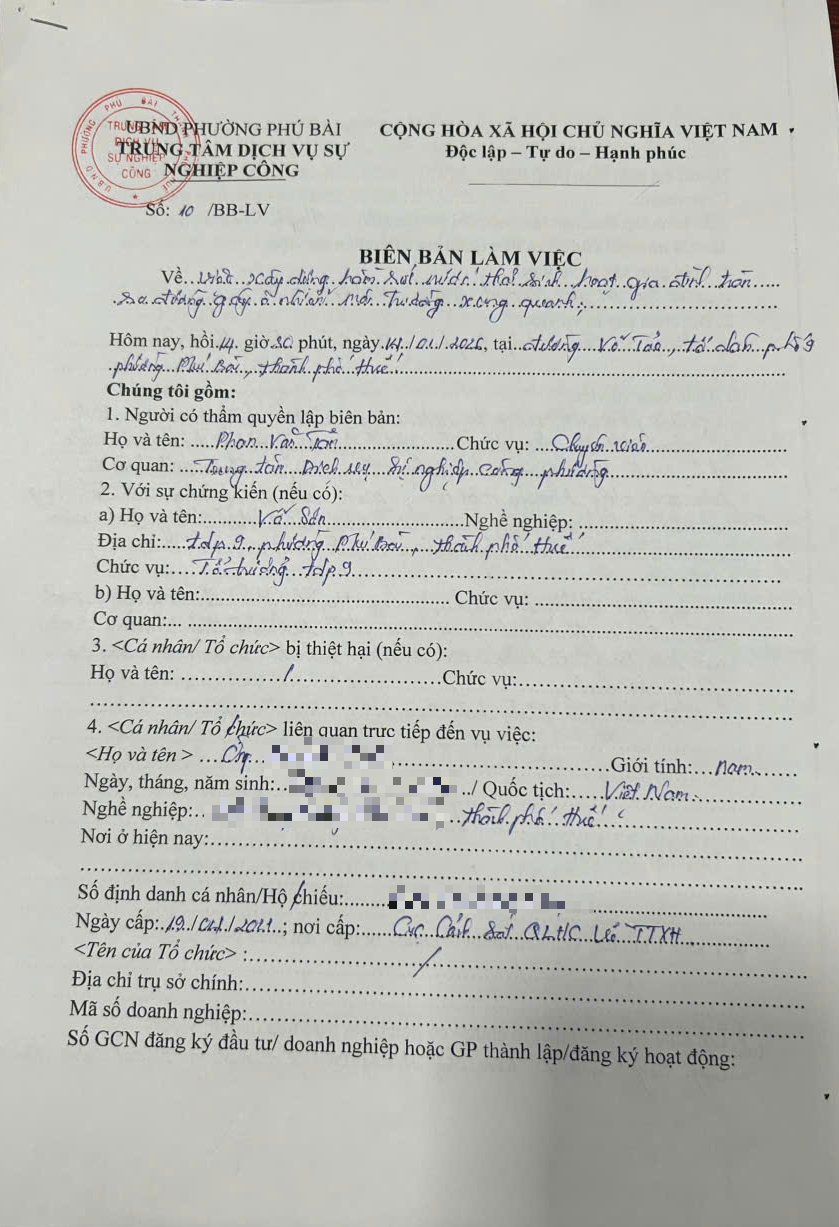 UBND PHƯỜNG PHÚ BÀI
TRUNG TÂM DỊCH VỤ SỰ
NGHIỆP CÔNG
Số: 10 /BB-LV
CỘNG HÒA XÃ HỘI CHỦ NGHĨA VIỆT NAM
Độc lập – Tự do – Hạnh phúc
U.B.N.D PHƯỜNG PHÚ BÀI THÀNH PHỐ HUẾ
TRUNG TÂM
DỊCH VỤ
SỰ NGHIỆP
CÔNG
BIÊN BẢN LÀM VIỆC
Về việc xây dựng hầm rút nước thải sinh hoạt gia đình tràn
ra đường gây ô nhiễm môi trường xung quanh;
Hôm nay, hồi 14 giờ 30 phút, ngày 14/01/2026, tại đường Võ Tảo, tổ dân phố 9
phường Phú Bài, thành phố Huế.
Chúng tôi gồm:
1. Người có thẩm quyền lập biên bản:
Họ và tên: Phan Văn Chức vụ: Chuyên viên
Cơ quan: Trung tâm Dịch vụ sự nghiệp công phường
2. Với sự chứng kiến (nếu có):
a) Họ và tên: Võ Nghề nghiệp:
Địa chỉ: tdp 9, phường Phú Bài, thành phố Huế
Chức vụ: Tổ trưởng tdp 9
b) Họ và tên: Chức vụ:
Cơ quan:
3. <Cá nhân/ Tổ chức> bị thiệt hại (nếu có):
Họ và tên: / Chức vụ:
4. <Cá nhân/ Tổ chức> liên quan trực tiếp đến vụ việc:
<Họ và tên > Ông Giới tính: nam
Ngày, tháng, năm sinh: / Quốc tịch: Việt Nam
Nghề nghiệp: thành phố Huế
Nơi ở hiện nay:
Số định danh cá nhân/Hộ chiếu:
Ngày cấp: 19/04/2021; nơi cấp: Cục Cảnh sát QLHC về TTXH
<Tên của Tổ chức> : /
Địa chỉ trụ sở chính:
Mã số doanh nghiệp:
Số GCN đăng ký đầu tư/ doanh nghiệp hoặc GP thành lập/đăng ký hoạt động: